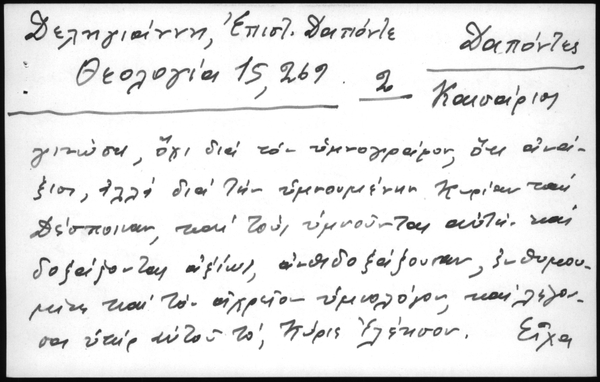 Δεληγιάννη, Ἐπιστ. Δαπόντε
Δαπόντες
Θεολογία 15, 269
2
Καισάριος
γινώσκ, ὄχι διά τόν ὑμνογράφον, ὅτι ἀνάξιος
, ἀλλά διά τήν ὑμνουμένην Κυρίαν καί
Δέσποιναν, καί τούς ὑμνοῦντας αὐτήν καί
δοξάζοντας ἀξίως, ἀντιδοξάζουσαν, ἐνθυμού-
μενοι καί τόν ἀχρεῖον ὑμνολόγον, καί λέγον-
τες ὑπέρ αὐτοῦ τό, Κύριε ἐλέησον. Εἶχα